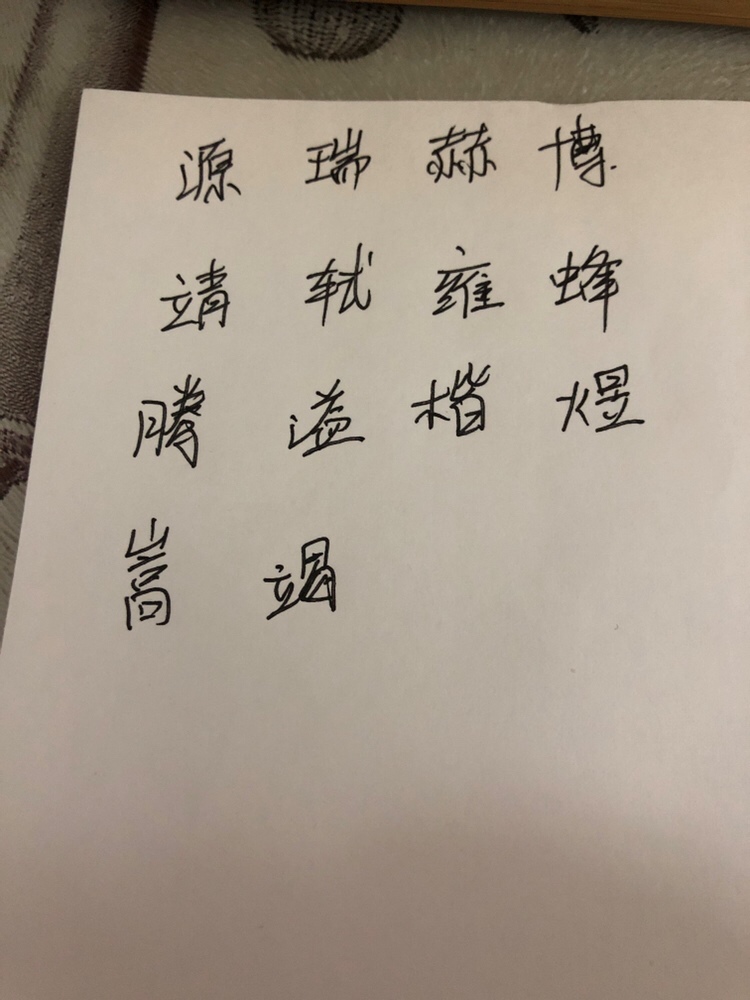 源 瑞 赫 博
靖 轼 雍 蜂
腾 溢 楷 煜
嵩 竭